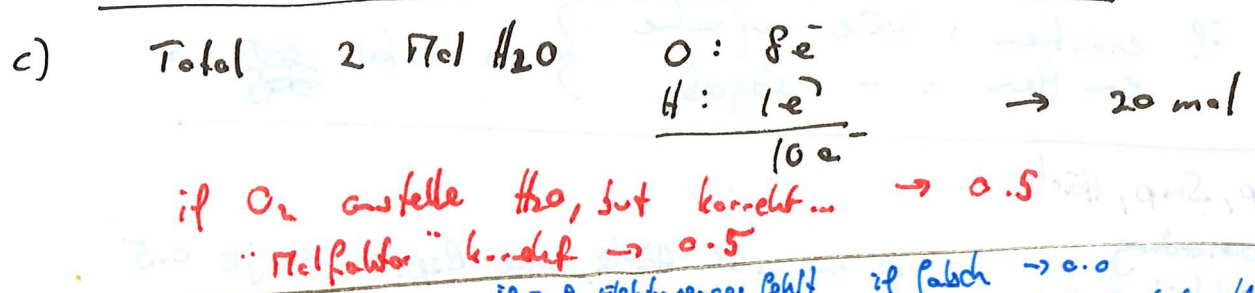 c) Total 2 Mol H2O O : 8e⁻
H : 1e⁻ → 20 mol
10e⁻
if O2 anstelle H2O, but korrekt... → 0.5
"Molfaktor" korrekt → 0.5
fehlt if falsch → 0.0